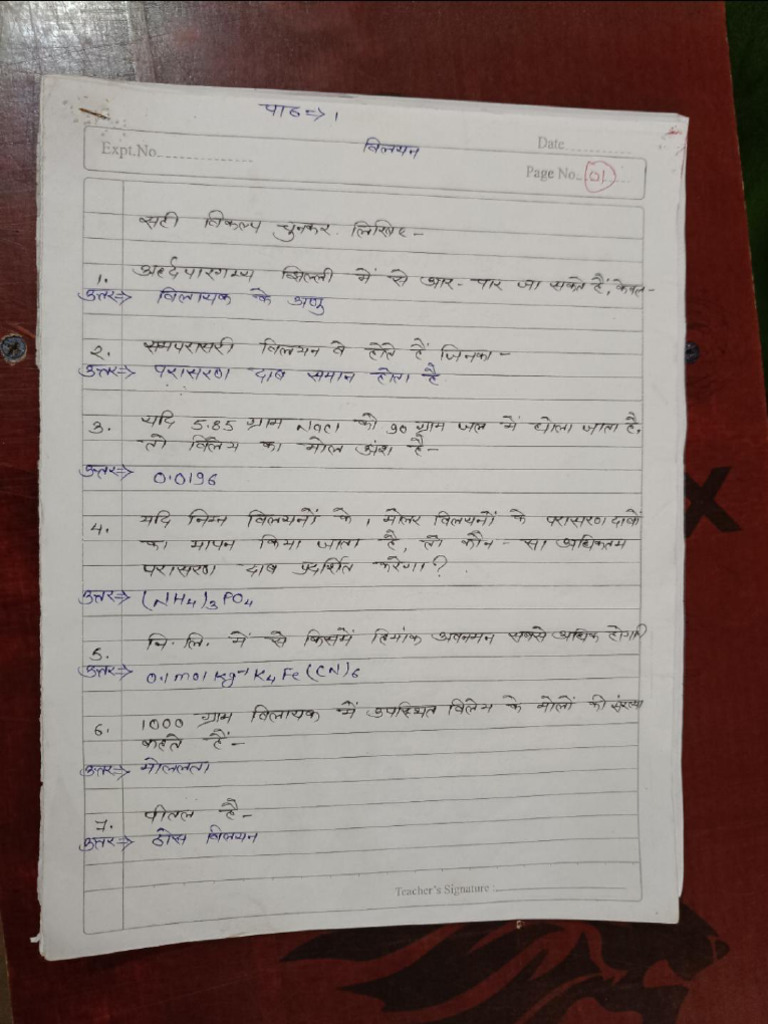 पाठ⇒ 1
Expt.No. विलयन Date
Page No. 01
सही विकल्प चुनकर लिखिए -
1. अर्द्धपारगम्य झिल्ली में से आर-पार जा सकते हैं, केवल-
उत्तर⇒ विलायक के अणु
2. समपरासरी विलयन वे होते हैं जिनका -
उत्तर⇒ परासरण दाब समान होता है
3. यदि 5.85 ग्राम NaCl को 90 ग्राम जल में घोला जाता है,
तो विलेय का मोल अंश है -
उत्तर⇒ 0.0196
4. यदि निम्न विलयनों के 1 मोलर विलयनों के परासरण दाबों
का मापन किया जाता है, तो कौन-सा अधिकतम
परासरण दाब प्रदर्शित करेगा?
उत्तर⇒ (NH4)3PO4
5. नि. लि. में से किसमें हिमांक अवनमन सबसे अधिक होगा?
उत्तर⇒ 0.1 mol kg⁻¹ K4Fe(CN)6
6. 1000 ग्राम विलायक में उपस्थित विलेय के मोलों की संख्या
कहते हैं -
उत्तर⇒ मोललता
7. पीतल है -
उत्तर⇒ ठोस विलयन
Teacher's Signature :